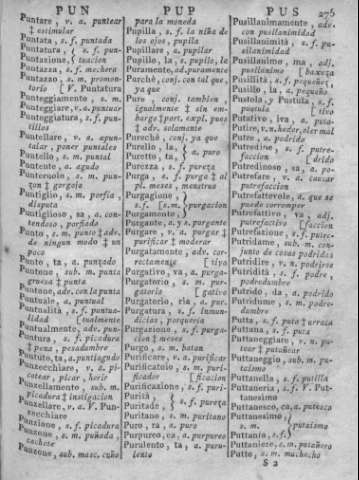 PUN
PUP
PUS
275
Puntare, v. a. puntear
‡ estimular
Puntata, s. f. puntada
Puntatura, s. f. pun-
Puntazione, tuacion
Puntazza, s. f. mechera
Puntazzo, s. m. promon-
torio [V. Puntatura
Punteggiamento, s. m.
Punteggiare, v. a. puntear
Punteggiatura, s. f. pun-
tillos
Puntellare, v. a. apun-
talar, poner puntales
Puntello, s. m. puntal
Punteruolo, s. m. pun-
zon ‡ gorgojo
Puntiglio, s. m. porfia,
disputa
Puntiglioso, sa, a. con-
tendoso, porfiado
Punto, s. m. punto ‡ adv.
de ningun modo ‡ un
poco
Punto, ta, a. punzado
Puntone, sub. m. punta
gruesa ‡ punta
Puntuale, a. puntual
Puntualità, s. f. puntua-
lidad [tualmente
Puntualmente, adv. pun-
Puntura, s. f. picadura
‡ pena, pesadumbre
Puntuto, ta, a. puntiagudo
Punzecchiare, v. a. pi-
cotear, picar, herir
Punzellamento, sub. m.
picadura ‡ instigacion
Punzellare, v. a. V. Pun-
zecchiare
Punzione, s. f. picadura
Punzone, s. m. puñada,
cachete
para la moneda
Pupilla, s. f. la niña de
los ojos, pupila
Pupillare, a. pupilar
Pupillo, la, s. pupilo, le
Puramente, ad. puramente
Purchè, conj. con tal que,
con que
Pure, conj. tambien,
igualmente ‡ sin em-
bargo ‡ port. expl. pues
‡ adv. solamente
Purechè, conj. ya que
Purello, la,
Puretto, ta, a. puro
Purezza, s. f. pureza
Purga, s. f. purga ‡ al
pl. meses, menstruo
Purgagione,
s. f. [s. m. purgacion
Purgamento,
Purgante, a. y s. purgante
Purgare, v. a. purgar ‡
purificar ‡ moderar
Purgatamente, adv. cor-
rectamente [tipo
Purgativo, va, a. purga-
Purgatorio, s. m. pur-
gatorio [gativo
Purgatorio, ria, a. pur-
Purgatura, s. f. inmun-
dicias, porquería
Purgazione, s. f. purga-
cion ‡ meses
Purgo, s. m. batan
Purificare, v. a. purificar
Purificatoio, s. m. puri-
ficador [ficacion
Purificazione, s. f. puri-
Purità,
Puritade, s. f. pureza
Puritano, s. m. puritano
Puro, ra, a. puro
Purpureo, ea, a. purpureo
Purulento, ta, a. puru-
lento
Pusillanimamente, adv.
con pusilanimidad
Pusillanimità, s. f. pu-
silanimidad
Pusillanimo, ma, adj.
pusilanimo [baxeza
Pusillità, s. f. pequeñez,
Pusillo, la, a. pequeño
Pustola, y Pustula, s. f.
pustula [tivo
Putativo, iva, a. puta-
Putire, v. n. heder, oler mal
Putre, a. podrido
Putredine, s. f. putre-
faccion [drido
Putredinoso, sa, a. po-
Putrefare, v. a. causar
putrefaccion
Putrefattevole, a. que se
puede corromper
Putrefattivo, va, adj.
putrefactivo [faccion
Putrefazione, s. f. putre-
Putridame, sub. m. con-
junto de cosas podridas
Putridire, v. n. podrirse
Putridità, s. f. podre,
podredumbre
Putrido, da, a. podrido
Putridume, s. m. podre-
dumbre
Putta, s. f. puta ‡ urraca
Puttana, s. f. puta
Puttaneggiare, v. n. pu-
tear ‡ putañear
Puttaneggio, sub. m. pu-
taismo
Puttanella, s. f. putilla
Puttaneria, s. f. V. Put-
tanesimo
Puttanesco, ca, a. putesco
Puttanesimo, s. m.
Puttania, s. f. putaismo
Puttaniere, s. m. putañero
Putto, s. m. muchacho
S 2